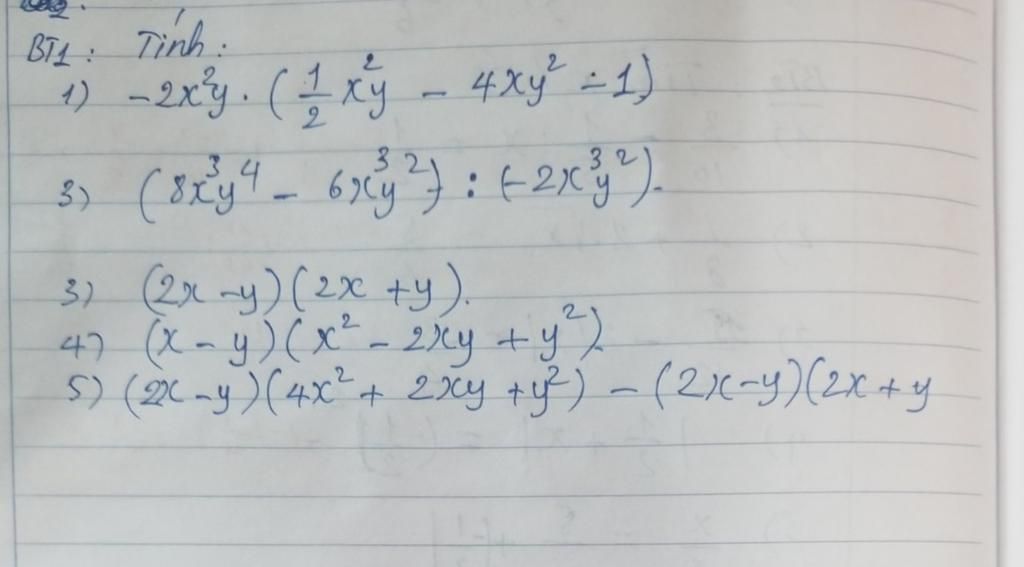 BT1: Tính:
1) -2x²y . (1/2 x²y - 4xy² - 1)
3) (8x³y⁴ - 6x³y²) : (-2x³y²).
3) (2x - y)(2x + y).
4) (x - y)(x² - 2xy + y²).
5) (2x - y)(4x² + 2xy + y²) - (2x - y)(2x + y